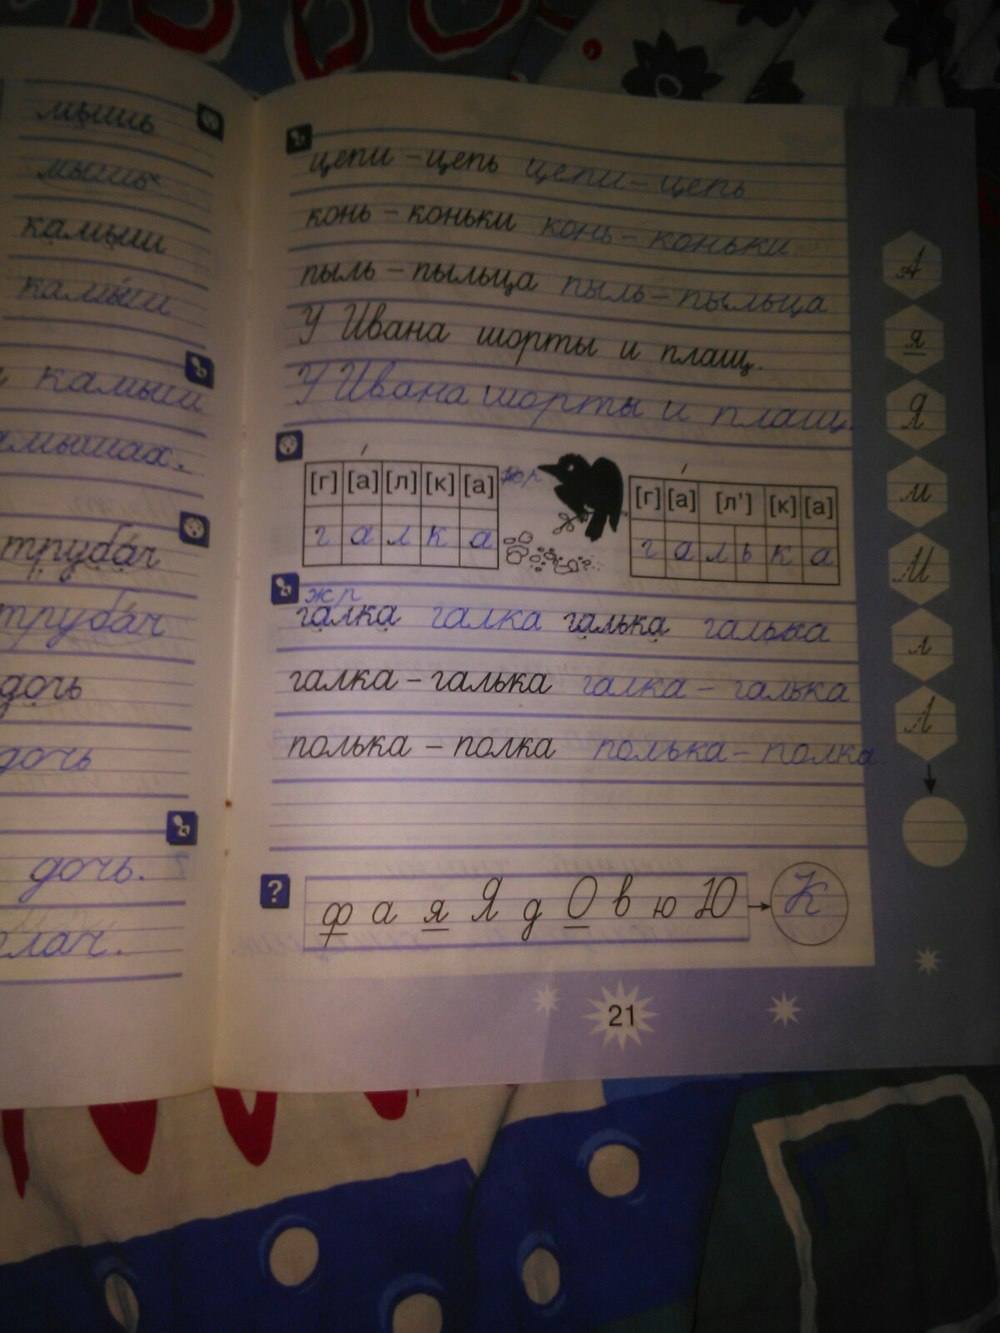 мышь
мышь
камыш
камыш
камыш
камышах.
трубач
трубач
дочь
дочь
дочь.
цепи – цепь цепи – цепь
конь – коньки конь – коньки
пыль – пыльца пыль – пыльца
У Ивана шорты и плащ.
У Ивана шорты и плащ.
[г] [а] [л] [к] [а] жр [г] [а] [л'] [к] [а]
г а л к а г а л ь к а
жр
галка галка галька галька
галка – галька галка – галька
полька – полка полька – полка
? ф а я Я д О в ю Ю К
21
А
я
Я
м
М
л
Л